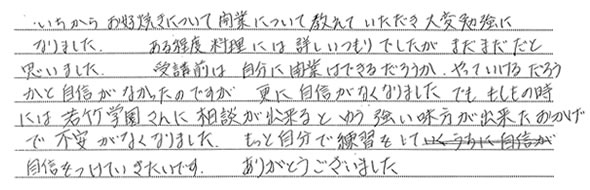 いちから お好焼きについて 開業について 教えて いただき 大変勉強に
なりました. ある程度 料理には 詳しいつもりでしたが まだまだだと
思いました. 受講前は 自分に 開業はできるだろうか. やっていけるだろう
かと自信がなかったのですが 更に 自信がなくなりました でも もしもの時
には 若竹学園さんに 相談が出来ると ゆう 強い味方が出来たおかげ
で 不安がなくなりました. もっと自分で練習をして いくうちに 自信が
自信をつけていきたいです. ありがとうございました